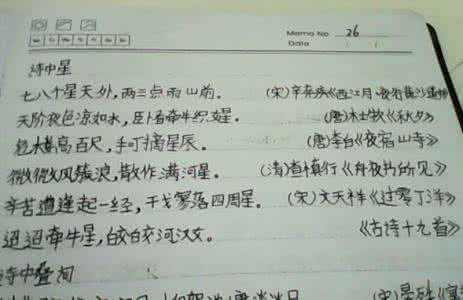 Memo No. 26
Date / /
诗中星
七八个星天外,两三点雨山前. (宋)辛弃疾《西江月·夜行黄沙道中》
天阶夜色凉如水,卧看牵牛织女星. (唐)杜牧《秋夕》
危楼高百尺,手可摘星辰. (唐)李白《夜宿山寺》
微微风簇浪,散作满河星. (清)查慎行《舟夜书所见》
辛苦遭逢起一经,干戈寥落四周星. (宋)文天祥《过零丁洋》
迢迢牵牛星,皎皎河汉女. 《古诗十九首》
诗中叠词